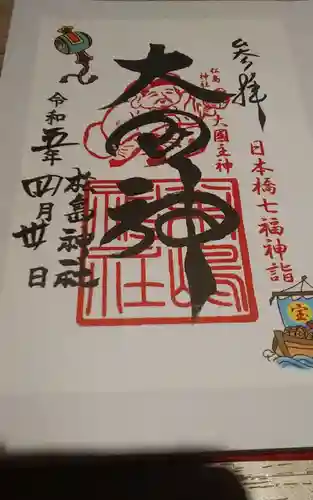 参拝
日本橋七福神詣
松島
神社
大國主神
大国神
松島神社
令和五年
四月廿日
松嶋
神社
宝